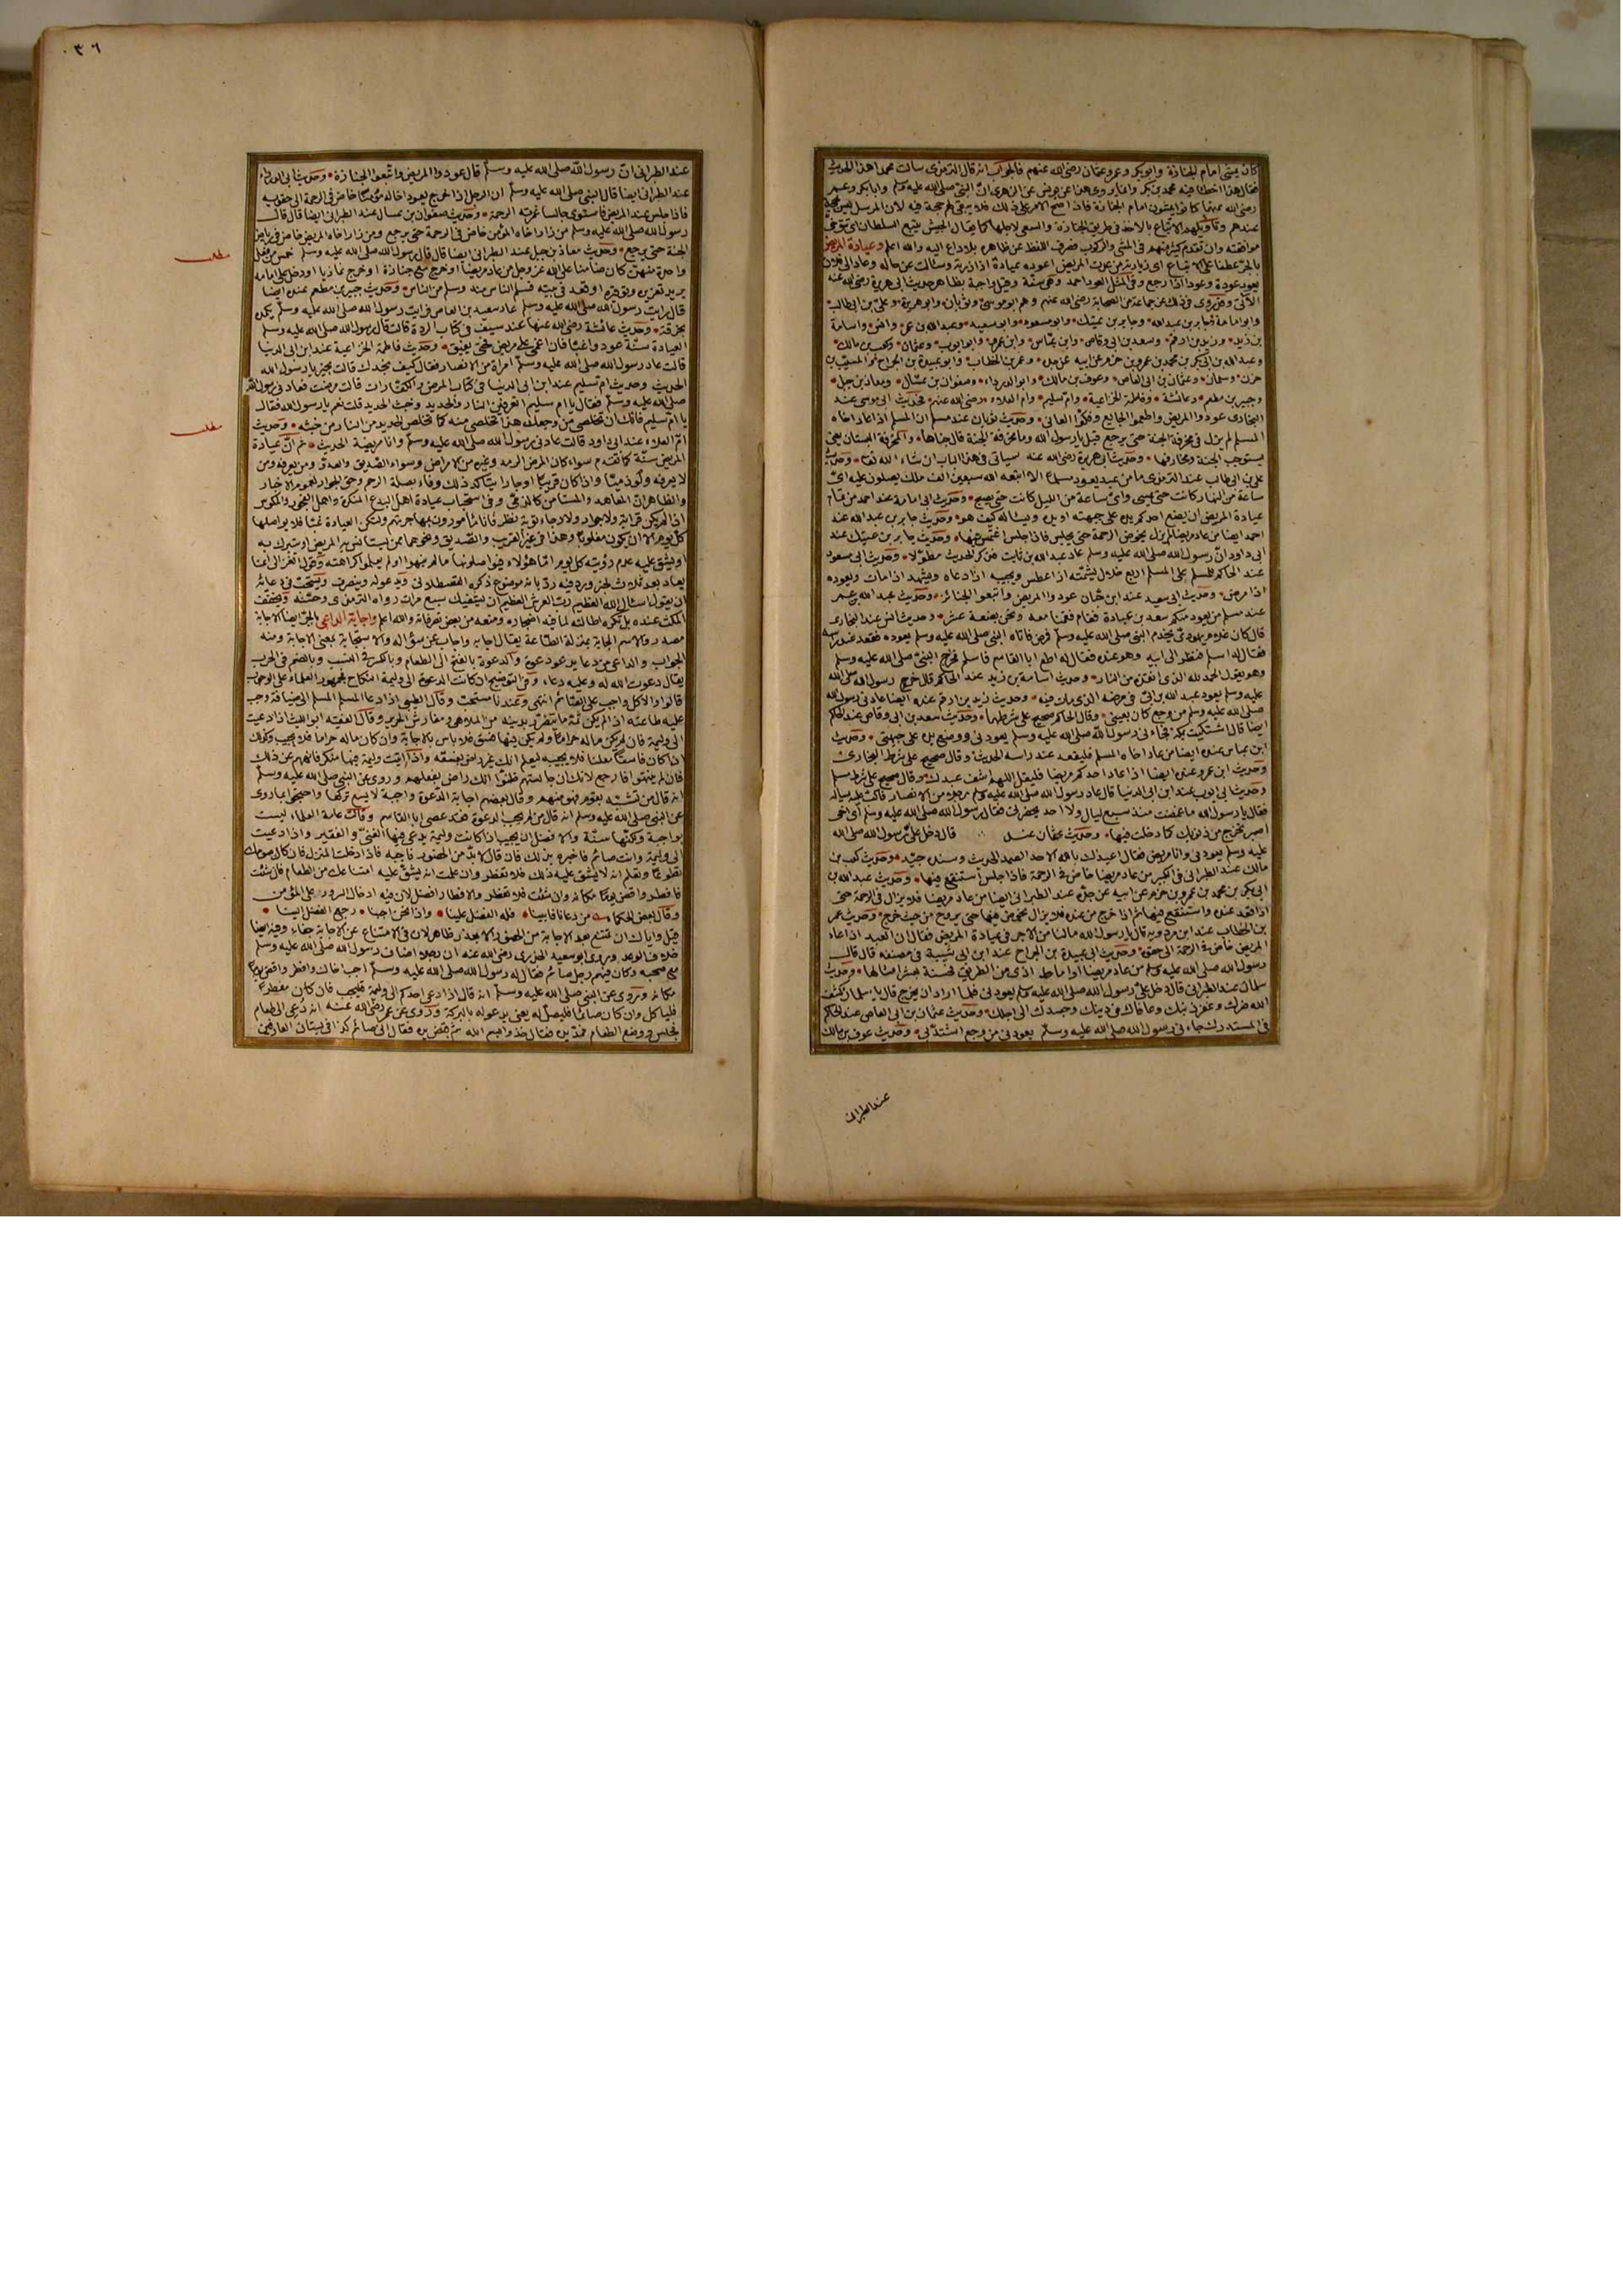 كان يمشى امام الجنازة وابو بكر وعمر وعثمان رضى الله عنهم فالجواب انه قال الترمذى سألت محمدا هذا الحديث
فقال هذا اخطأ فيه محمد بن بكر وانما يروى هذا عن يونس عن الزهرى ان النبى صلى الله عليه وسلم وابا بكر وعمر
رضى الله عنهما كانوا يمشون امام الجنازة فاذا اصح الامر على ذلك فلا يبقى لهم حجة فيه لان المرسل ليس بحجة
عندهم وتأويلهم الاتباع بالاخذ فى طريق الجنازة والسعى لاجلها كما يقال الجيش يتبع السلطان اى يتوخى
موافقته وان تقدم كثير منهم فى المشى والركوب فصرف اللفظ عن ظاهره بلا داع اليه والله اعلم وعيادة المريض
بالجر عطفا على الاتباع اى زيارته من عدت المريض اعوده عيادة اذا زرته وسألت عن حاله وعاد الى فلان
يعود عودة وعودا اذا رجع وفى المثل العود احمد وهى سنة وقيل واجبة بظاهر حديث ابى هريرة رضى الله عنه
الآتى وقد روى فى ذلك عن جماعة من الصحابة رضى الله عنهم وهم ابو موسى وثوبان وابو هريرة وعلى بن ابى طالب
وابو امامة وجابر بن عبد الله وجابر بن عتيك وابو مسعود وابو سعيد وعبد الله بن عمر وانس واسامة
بن زيد وزيد بن ارقم وسعد بن ابى وقاص وابن عباس وابن عمرو وابو ايوب وعثمان وكعب بن مالك
وعبد الله بن ابى بكر بن محمد بن عمرو بن حزم عن ابيه عن جده وعمر بن الخطاب وابو عبيدة بن الجراح والمسيب بن
حزن وسلمان وعثمان بن ابى العاص وعوف بن مالك وابو الدرداء وصفوان بن عسال ومعاذ بن جبل
وجبير بن مطعم وعائشة وفاطمة الخزاعية وام سليم وام العلاء رضى الله عنهم فحديث ابى موسى عند
البخارى عودوا المريض واطعموا الجايع وفكوا العانى وحديث ثوبان عند مسلم ان المسلم اذا عاد اخاه
المسلم لم يزل فى مخرفة الجنة حتى يرجع قيل يا رسول الله وما مخرفة الجنة قال جناها والمخرفة البستان يعنى
يستوجب الجنة ومخارفها وحديث ابى هريرة رضى الله عنه سياتى فى هذا الباب ان شاء الله تعالى وحديث
على بن ابى طالب عند الترمذى ما من عبد يعود مسلما الا ابتعث الله سبعين الف ملك يصلون عليه اى
ساعة من النهار كانت حتى يمسى واى ساعة من الليل كانت حتى يصبح وحديث ابى امامة عند احمد من تمام
عيادة المريض ان يضع احدكم يده على جبهته او يده ويسأله كيف هو وحديث جابر بن عبد الله عند
احمد ايضا من عاد مريضا لم يزل يخوض الرحمة حتى يجلس فاذا جلس اغتمس فيها وحديث جابر بن عتيك عند
ابى داود ان رسول الله صلى الله عليه وسلم عاد عبد الله بن ثابت فذكر الحديث مطولا وحديث ابى مسعود
عند الحاكم للمسلم على المسلم اربع خلال يشمته اذا عطس ويجيبه اذا دعاه ويشهد اذا مات ويعوده
اذا مرض وحديث ابى سعيد عند ابن حبان عودوا المريض واتبعوا الجنائز وحديث عبد الله بن عمر
عند مسلم من يعود منكم سعد بن عبادة فقام فقمنا معه ونحن بضعة عشر وحديث انس عند البخارى
قال كان غلام يهودى يخدم النبى صلى الله عليه وسلم فمرض فاتاه النبى صلى الله عليه وسلم يعوده فقعد عند راسه
فقال له اسلم فنظر الى ابيه وهو عنده فقال له اطع ابا القاسم فاسلم فخرج النبى صلى الله عليه وسلم
وهو يقول الحمد لله الذى انقذه من النار وحديث اسامة بن زيد عند الحاكم قال خرج رسول الله صلى الله
عليه وسلم يعود عبد الله بن ابى فى مرضه الذى مات فيه وحديث زيد بن ارقم عنده ايضا عادنى رسول الله
صلى الله عليه وسلم من وجع كان بعينى وقال الحاكم صحيح على شرطهما وحديث سعد بن ابى وقاص عند الحاكم
ايضا قال اشتكيت بمكة فجاءنى رسول الله صلى الله عليه وسلم يعودنى ووضع يده على جبهتى وحديث
ابن عباس عنده ايضا من عاد اخاه المسلم فليقعد عند راسه الحديث وقال صحيح على شرط البخارى
وحديث ابن عمرو عنده ايضا اذا عاد احدكم مريضا فليقل اللهم اشف عبدك وقال صحيح على شرط مسلم
وحديث ابى ايوب عند ابن ابى الدنيا قال عاد رسول الله صلى الله عليه وسلم رجلا من الانصار فاكب عليه يسأله
فقال يا رسول الله ما غمضت منذ سبع ليال ولا احد يحضرنى فقال رسول الله صلى الله عليه وسلم اى اخى
اصبر تخرج من ذنوبك كما دخلت فيها وحديث عثمان عند قال دخل على رسول الله صلى الله
عليه وسلم يعودنى وانا مريض فقال اعيذك بالله الاحد الصمد الحديث وسنده جيد وحديث كعب بن
مالك عند الطبرانى فى الكبير من عاد مريضا خاض فى الرحمة فاذا جلس استنقع فيها وحديث عبد الله بن
ابى بكر بن محمد بن عمرو بن حزم عن ابيه عن جده عند الطبرانى ايضا من عاد مريضا فلا يزال فى الرحمة حتى
اذا قعد عنده استنقع فيها ثم اذا خرج من عنده فلا يزال يخوض فيها حتى يروح من حيث خرج وحديث عمر
بن الخطاب عند ابن مردويه قال يا رسول الله ما لنا من الاجر فى عيادة المريض فقال ان العبد اذا عاد
المريض خاض فى الرحمة الى حقوه وحديث ابى عبيدة بن الجراح عند ابن ابى شيبة فى مصنفه قال قال
رسول الله صلى الله عليه وسلم من عاد مريضا او اماط اذى من الطريق فحسنة بعشر امثالها وحديث
سلمان عند الطبرانى قال دخل على رسول الله صلى الله عليه وسلم يعودنى فلما اراد ان يخرج قال يا سلمان كشف
الله ضرك وغفر ذنبك وعافاك فى دينك وجسدك الى اجلك وحديث عثمان بن ابى العاص عند الحاكم
فى المستدرك جاءنى رسول الله صلى الله عليه وسلم يعودنى من وجع اشتد بى وحديث عوف بن مالك
عند الطبرانى
٠٣٦
عند الطبرانى ان رسول الله صلى الله عليه وسلم قال عودوا المريض واتبعوا الجنازة وحديث ابى الدرداء
عند الطبرانى ايضا قال النبى صلى الله عليه وسلم ان الرجل اذا خرج يعود اخا له مؤمنا خاض فى الرحمة الى حقويه
فاذا جلس عند المريض فاستوى جالسا غمرته الرحمة وحديث صفوان بن عسال عند الطبرانى ايضا قال قال
رسول الله صلى الله عليه وسلم من زار اخاه المؤمن خاض فى الرحمة حتى يرجع ومن زار اخاه المريض خاض فى رياض
الجنة حتى يرجع وحديث معاذ بن جبل عند الطبرانى ايضا قال قال رسول الله صلى الله عليه وسلم خمس من فعل
مطلب
واحدة منهن كان ضامنا على الله عز وجل من عاد مريضا او خرج مع جنازة او خرج غازيا او دخل على امامه
يريد تعزيره وتوقيره او قعد فى بيته فسلم الناس منه وسلم من الناس وحديث جبير بن مطعم عنده ايضا
قال رايت رسول الله صلى الله عليه وسلم عاد سعيد بن العاص فرايت رسول الله صلى الله عليه وسلم يكمده
بخرقة وحديث عائشة رضى الله عنها عند سيف فى كتاب الردة قالت قال رسول الله صلى الله عليه وسلم
العيادة سنة عودوا غبا فان اغمى على مريض فحتى يفيق وحديث فاطمة الخزاعية عند ابن ابى الدنيا
قالت عاد رسول الله صلى الله عليه وسلم امراة من الانصار فقال كيف تجدك قالت بخير يا رسول الله
الحديث وحديث ام سليم عند ابن ابى الدنيا فى كتاب المرض والكفارات قالت مرضت فعادنى رسول الله
صلى الله عليه وسلم فقال يا ام سليم اتعرفين النار والحديد وخبث الحديد قلت نعم يا رسول الله فقال
يا ام سليم فانك ان تخلصى من وجعك هذا تخلصى منه كما تخلص الحديد من النار من خبثه وحديث
مطلب
ام العلاء عند ابى داود قالت عادنى رسول الله صلى الله عليه وسلم وانا مريضة الحديث ثم ان عيادة
المريض سنة كما تقدم سواء كان المرض الرمد وغيره من الامراض وسواء الصديق والعدو ومن يعرفه ومن
لا يعرفه ولو ذميا واذا كان قريبا او جارا يتأكد ذلك وفاء بصلة الرحم وحق الجوار لعموم الاخبار
والظاهر ان المعاهد والمستامن كالذمى وفى استحباب عيادة اهل البدع المنكرة واهل الفجور والمكوس
اذا لم يكن قرابة ولا جوار ولا رجاء توبة نظر فانا مأمورون بمهاجرتهم ولتكن العيادة غبا فلا يواصلها
كل يوم الا ان يكون مغلوبا وهذا فى غير القريب والصديق ونحوهما ممن يستأنس به المريض او يتبرك به
او يشق عليه عدم رؤيته كل يوم اما هؤلاء فيواصلونها ما لم ينهوا او لم يعلموا كراهته وقول الغزالى انما
يعاد بعد ثلاث لخبر ورد فيه رد بانه موضوع ذكره القسطلانى ويدعو له وينصرف ويستحب فى دعائه
ان يقول اسأل الله العظيم رب العرش العظيم ان يشفيك سبع مرات رواه الترمذى وحسنه ويخفف
المكث عنده بل تكره اطالته لما فيه اضجاره ومنعه من بعض تصرفاته والله اعلم واجابة الداعى بالجر ايضا الاجابة
مصدر والاسم الجابة بمنزلة الطاعة يقال اجابه واجاب عن سؤاله والاستجابة بمعنى الاجابة ومنه
الجواب والداعى من دعا يدعو دعوة والدعوة بالفتح الى الطعام وبالكسر فى النسب وبالضم فى الحرب
يقال دعوت الله له وعليه دعاء وفى التوضيح ان كانت الدعوة الى وليمة النكاح فجمهور العلماء على الوجوب
قالوا والاكل واجب على الصائم انتهى وعندنا مستحب وقال الطيبى اذا دعا المسلم المسلم الى الضيافة وجب
عليه طاعته اذا لم يكن ثمة ما يتضرر بدينه من الملاهى ومفارش الحرير وقال الفقيه ابو الليث اذا دعيت
الى وليمة فان لم يكن ماله حراما ولم يكن فيها فسق فلا باس بالاجابة وان كان ماله حراما فلا يجيب وكذلك
اذا كان فاسقا معلنا فلا يجيبه ليعلم انك غير راض بفسقه واذا اتيت وليمة فيها منكر فانههم عن ذلك
فان لم ينتهوا فارجع لانك ان جالستهم ظنوا انك راض بفعلهم وروى عن النبى صلى الله عليه وسلم
انه قال من تشبه بقوم فهو منهم وقال بعضهم اجابة الدعوة واجبة لا يسع تركها واحتجوا بما روى
عن النبى صلى الله عليه وسلم انه قال من لم يجب الدعوة فقد عصى ابا القاسم وقال عامة العلماء ليست
بواجبة ولكنها سنة والافضل ان يجيب اذا كانت وليمة يدعى فيها الغنى والفقير واذا دعيت
الى وليمة وانت صائم فاخبره بذلك فان قال لا بد من الحضور فاجبه فاذا دخلت المنزل فان كان صومك
تطوعا وتعلم انه لا يشق عليه ذلك فلا تفطر وان علمت انه يشق عليه امتناعك من الطعام فان شئت
فافطر واقض يوما مكانه وان شئت فلا تفطر والافطار افضل لان فيه ادخال السرور على المؤمن
وقال بعض الحكماء من دعانا فابينا فله الفضل علينا واذا نحن اجبنا رجع الفضل الينا
قيل واياك ان تمتنع بعد الاجابة من الحضور الا بعذر ظاهر لان فى الامتناع عن الاجابة جفاء وفيه ايضا
خلاف الوعد وروى ابو سعيد الخدرى رضى الله عنه ان رجلا اضاف رسول الله صلى الله عليه وسلم
مع صحبه وكان فيهم رجل صائم فقال له رسول الله صلى الله عليه وسلم اجب اخاك وافطر واقض يوما
مكانه وروى عن النبى صلى الله عليه وسلم انه قال اذا دعى احدكم الى وليمة فليجب فان كان مفطرا
فلياكل وان كان صائما فليصل له يعنى يدعو له بالبركة وروى عن عمر رضى الله عنه انه دعى الى طعام
فجلس ووضع الطعام فمد يده فقال خذوا بسم الله ثم قبض يده فقال انى صائم كذا فى بستان العارفين